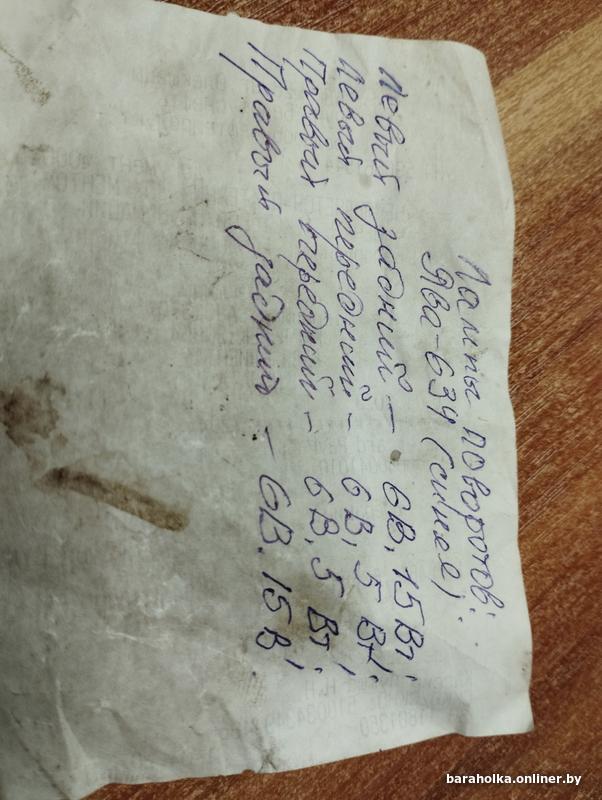 Лампы поворотов:
Ява-634 (синяя):
Левый задний – 6В, 15Вт;
Левый передний – 6В, 5Вт;
Правый передний – 6В, 5Вт;
Правый задний – 6В. 15В;
baraholka.onliner.by